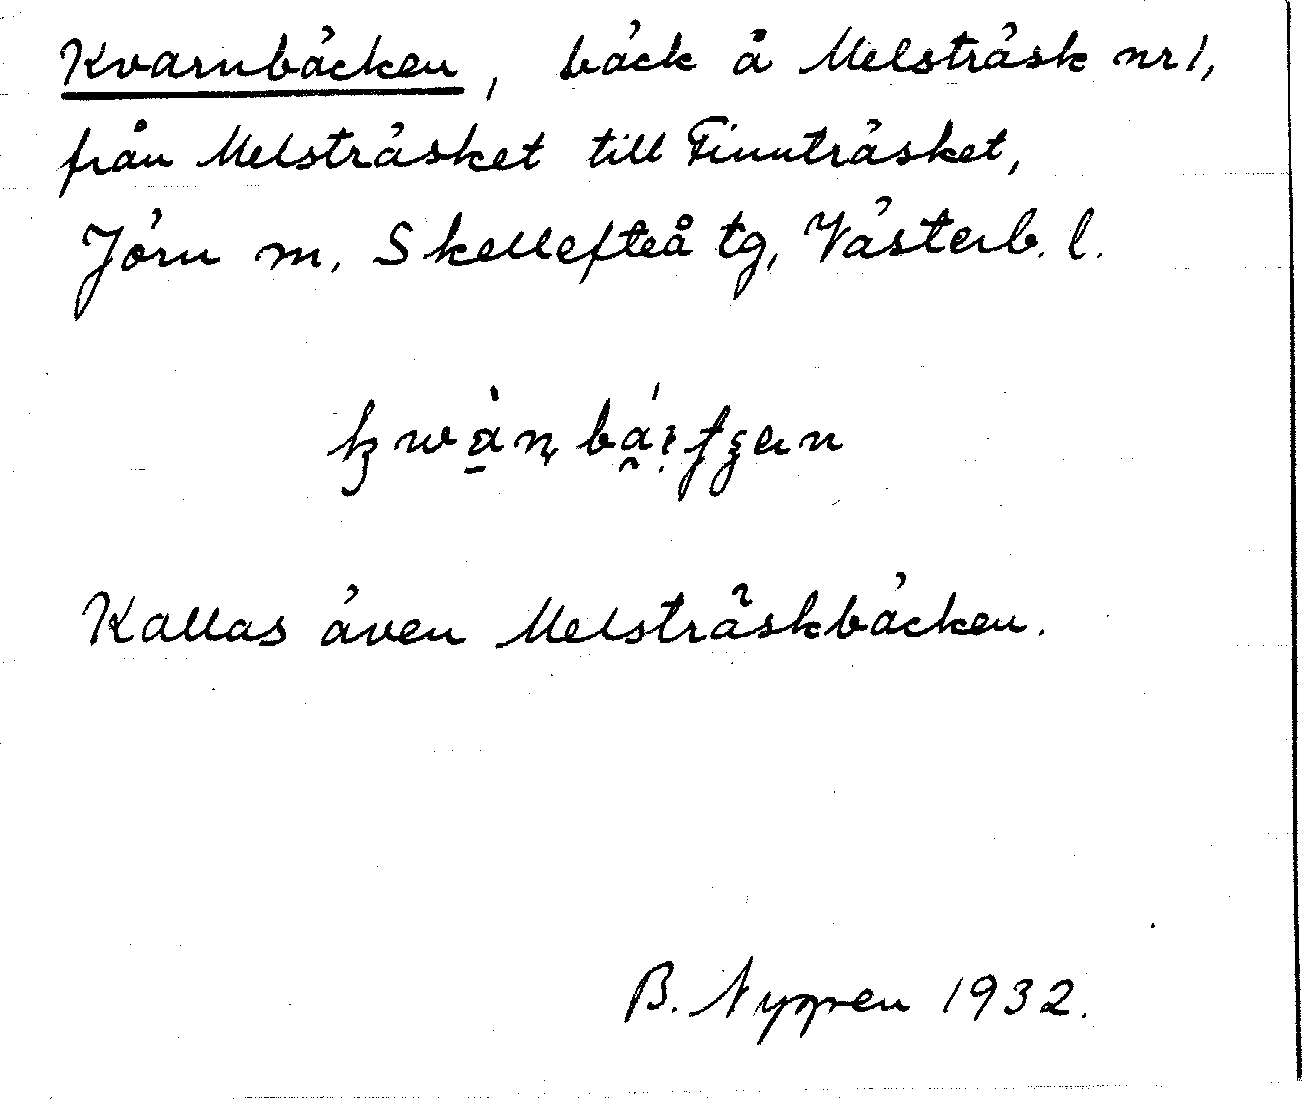 Kvarnbäcken, bäck å Melsträsk nr 1,
från Melsträsket till Finnträsket,
Jörn m, Skellefteå tg, Västerb. l.
Kallas även Melsträskbäcken.
B. Nygren 1932.